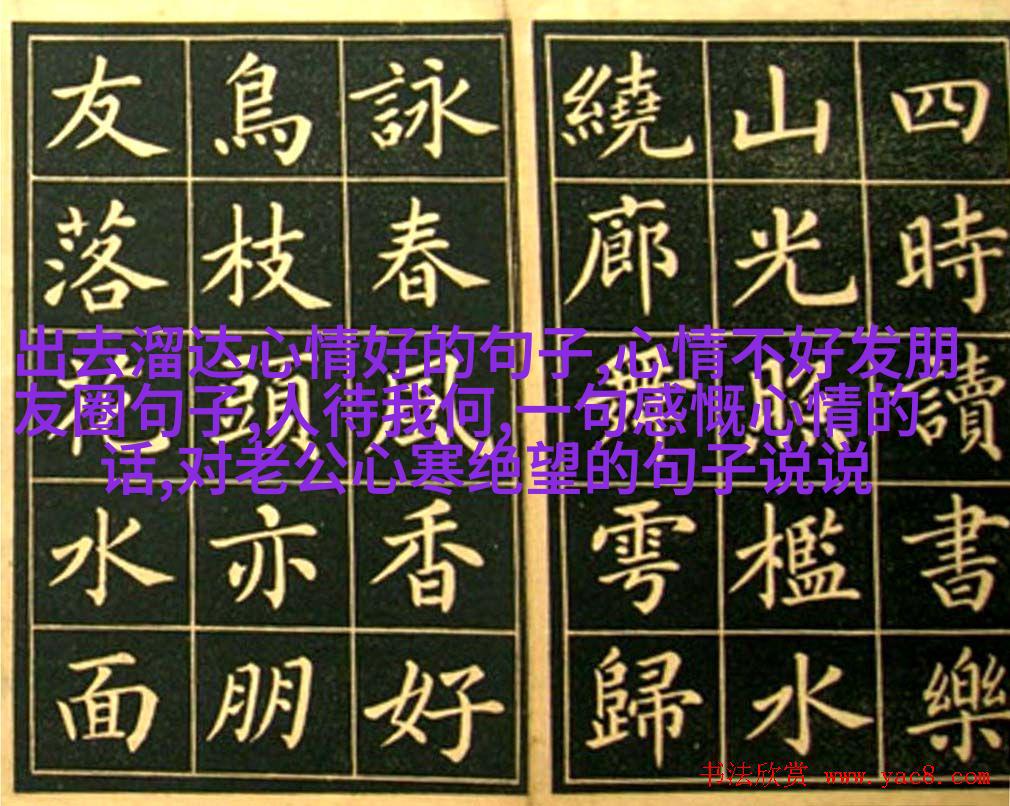 四時讀書樂
山光照檻水
繞廊舞雩歸
詠春風香好
鳥枝頭亦朋
友落花水面
出去溜达心情好的句子,心情不好发朋
友圈句子,人待我何,一句感慨心情的
话,对老公心寒绝望的句子说说
书法欣赏 www.yac8.com